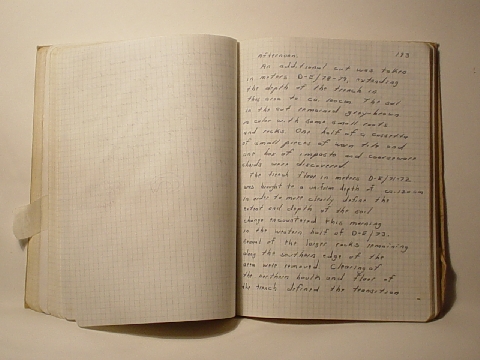 afternoon.
133
An additional cut was taken
in meters D-E/72-73, extending
the depth of the trench in
this area to ca. 100cm. The soil
in the cut remained grey-brown
in color with some small roots
and rocks. One half of a cassetta
of small pieces of worn tile and
one box of impasto and coarseware
sherds were discovered.
The trench floor in meters D-E/71-72
was brought to a uniform depth of ca. 120cm
in order to more clearly define the
extent and depth of the soil
change encountered this morning
in the western half of D-E/73.
Several of the larger rocks remaining
along the southern edge of the
area were removed. Clearing of
the northern baulk and floor of
the trench defined the transition